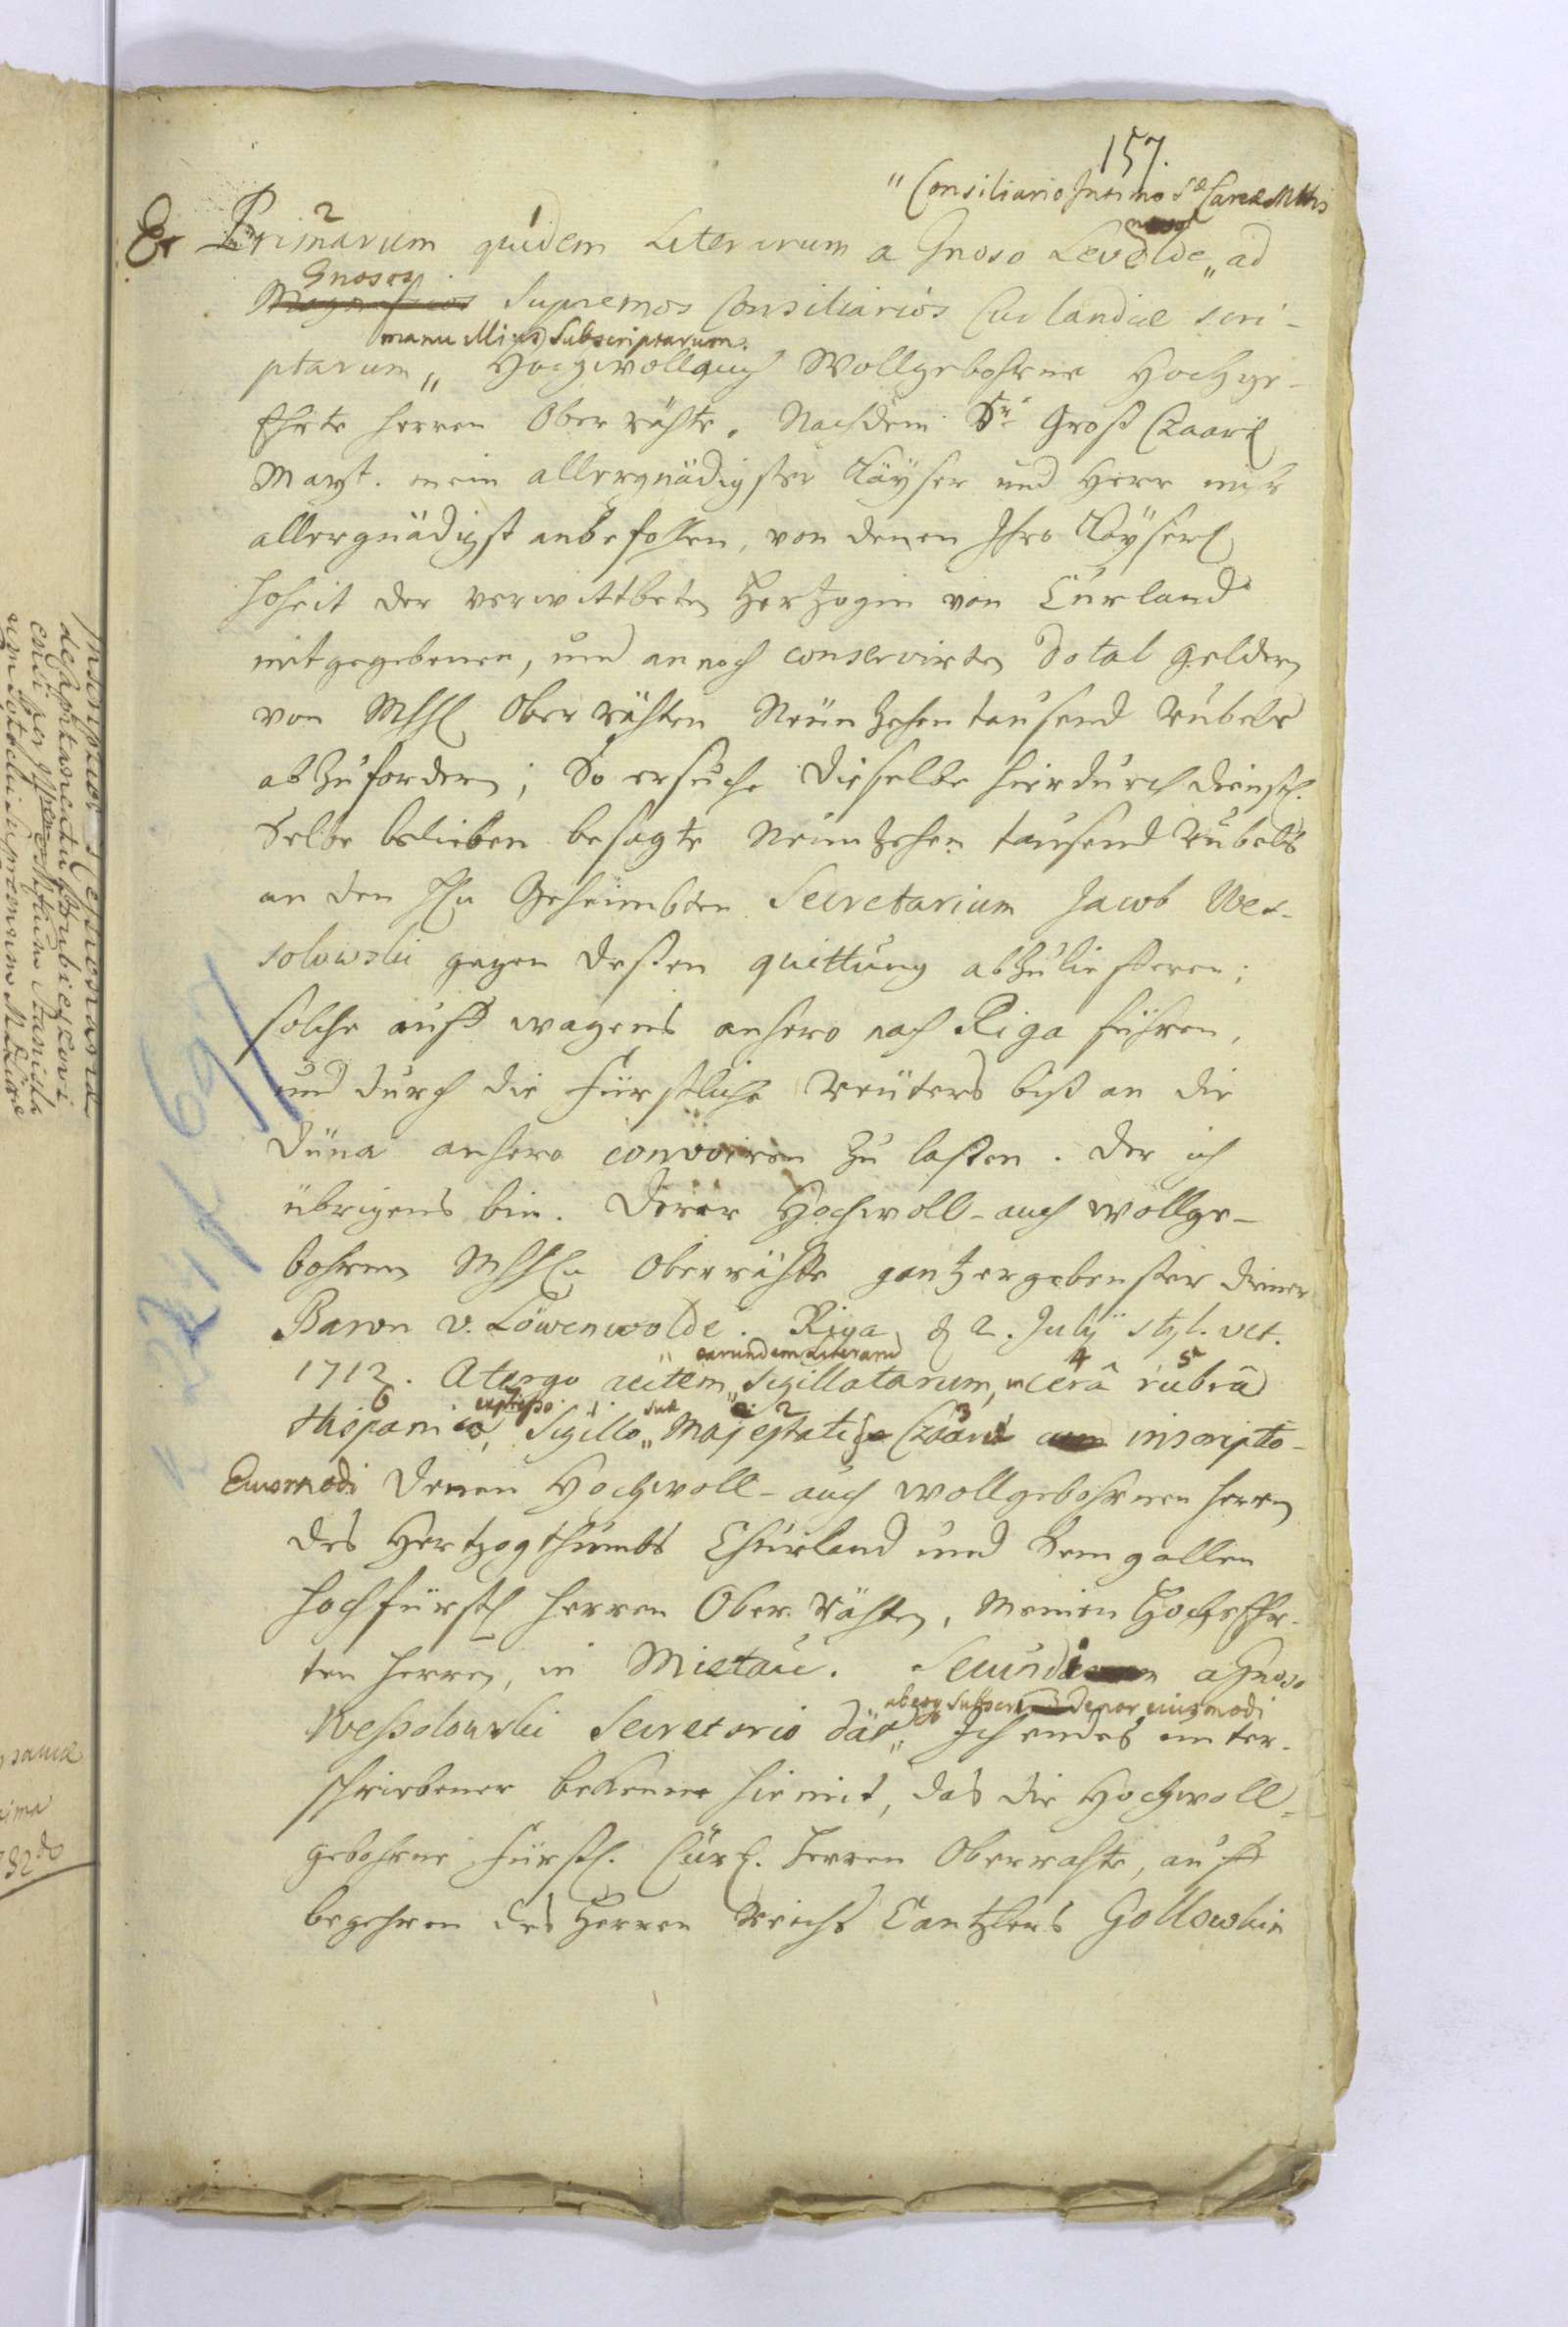 157.
" Consiliario Intimo Sæ Czareæ Mttis
Et Primarum quidem Literarum a Gnoso Levolde „ ad
Gnosos
Supremos Consiliarios Curlandiæ scri-
manu Subscriptarum.
ptarum „ Hochwoll auch Wollgebohrne Hochge-
Ehrte Herren Ober räthe. Nachdem Sr. Groß Czaarl
Mayt. mein allergnädigster Käyser und Herr mir
allergnädigst anbefohlen, von denen Ihro Käyserl
Hoheit der verwittbeten Hertzogin von Curland
mitgegebenen, und annoch conservirten Dotal geldern
von MHhl Ober räthen Neunzehen tausend Rubels
abzufordern; So ersuche dieselbe hierdurch dienstl.
Selbe belieben besagte Neunzehen tausend Rubels
an den Hn Geheimbten Secretarium Jacob Wes-
solowski gegen deßen quittung abzulieffern;
solche auff wagens anhero nach Riga führen,
und durch die Fürstliche Reuters biß an die
Düna anhero convoiren zu laßen. Der ich
übrigens bin. Derer Hochwoll- auch wollge-
bohrnen MHHn Oberräthe gantz ergebenster diener
Baron v. Löwenwolde. Riga d 2. July styl. vet.
earundem Literarum
1712. A tergo autem „ Sigillatarum, in cerâ rubrâ
4 5
6 expresso 1 suæ 2 3
Hispanica, Sigillo „ Majestatis Czareæ inscripto-
Eiusmodi Denen Hochwoll- auch wollgebohrnen Herrn
des Hertzogthumbs Churland und Semgallen
Hochfürstl Herren Ober Räthen, Meinen Hochgeehr-
ten Herren, in Mietau. Secundi a Gnoso
ab eoq subscri tenor eiusmodi
Wessolowski Secretario dat „ Ich endes unter-
schriebener bekenne hiemit, das die Hochwoll-
gebohrne Fürstl. Curl. Herren Oberräthe, auff
begehren des Herren Reichs Cantzlers Gollowkin